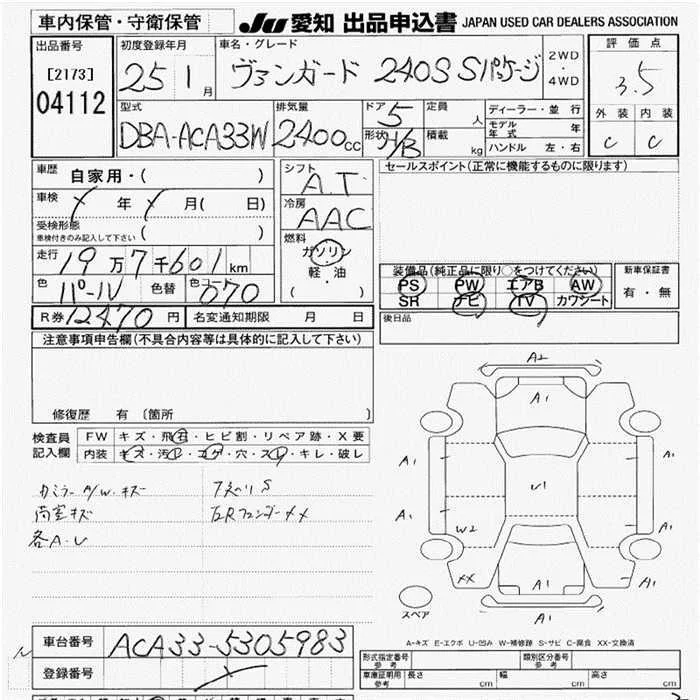 車内保管・守衛保管 JU 愛知 出品申込書 JAPAN USED CAR DEALERS ASSOCIATION
出品番号 初度登録年月 車名・グレード 2WD・4WD 評価点
[2173] 25 1月 ヴァンガード 240S Sパッケージ 3.5
04112
型式 排気量 ドア 5 定員 人 ディーラー・並行 外装 内装
DBA-ACA33W 2400cc 形状 H/B 積載 kg モデル年式 年 C C
ハンドル 左・右
車歴 自家用・( ) シフト AT セールスポイント(正常に機能するものに限ります)
車検 年 月( 日) 冷房 AAC
受検形態
車検付きのみ記入して下さい ( ) 燃料 ガソリン
走行 19万7千601km 軽・油 装備品(純正品に限り○をつけてください) 新車保証書
色 パール 色替 色コード 070 ( ・ ) PS PW エアB AW 有・無
SR ナビ TV カワシート
R券 12470円 名変通知期限 月 日 後日品
注意事項申告欄(不具合内容等は具体的に記入して下さい)
修復歴 有 〔箇所 〕
検査員 FW キズ・飛石・ヒビ割・リペア跡・X要
記入欄 内装 キズ・汚レ・コゲ・穴・スレ・キレ・破レ
A/W.キズ
キズ
各A.U
A2
A1
A1 A1
U1
A1 W2 A1
XX A1 A1
スペア A1
A-キズ E-エクボ U-凹み W-補修跡 S-サビ C-腐食 XX-交換済
車台番号 ACA33-5305983
登録番号
形式指定番号 参考 類別区分番号 参考
車庫証明用 参考 長さ cm 幅 cm 高さ cm